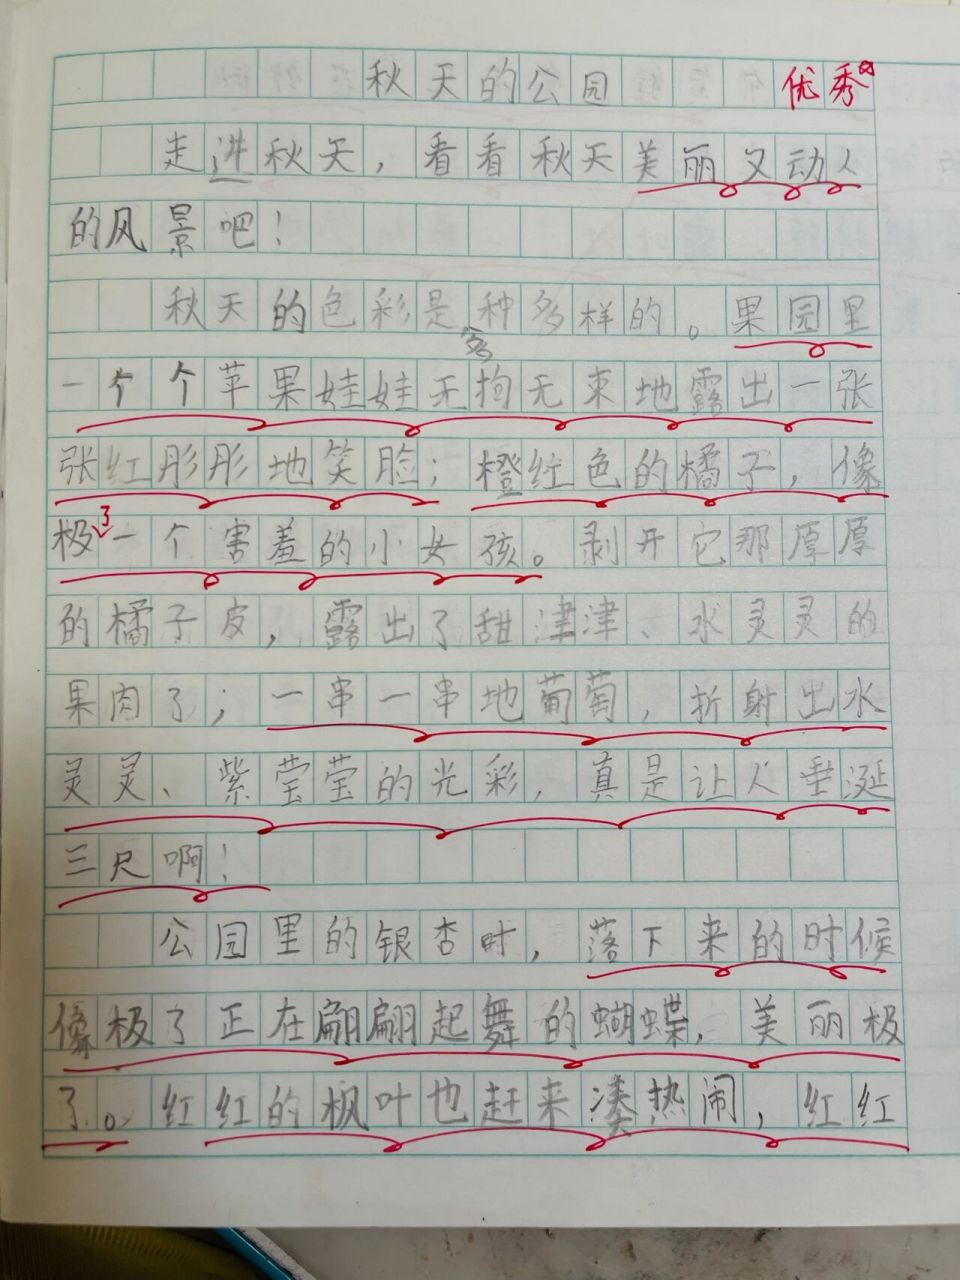 秋天的公园 优秀
走进秋天，看看秋天美丽又动人
的风景吧！
秋天的色彩是多种多样的。果园里
一个个苹果娃娃无拘无束地露出一张
张红彤彤地笑脸；橙红色的橘子，像
极了一个害羞的小女孩。剥开它那厚厚
的橘子皮，露出了甜津津、水灵灵的
果肉了；一串一串地葡萄，折射出水
灵灵、紫莹莹的光彩，真是让人垂涎
三尺啊！
公园里的银杏时，落下来的时候
像极了正在翩翩起舞的蝴蝶，美丽极
了。红红的枫叶也赶来凑热闹，红红